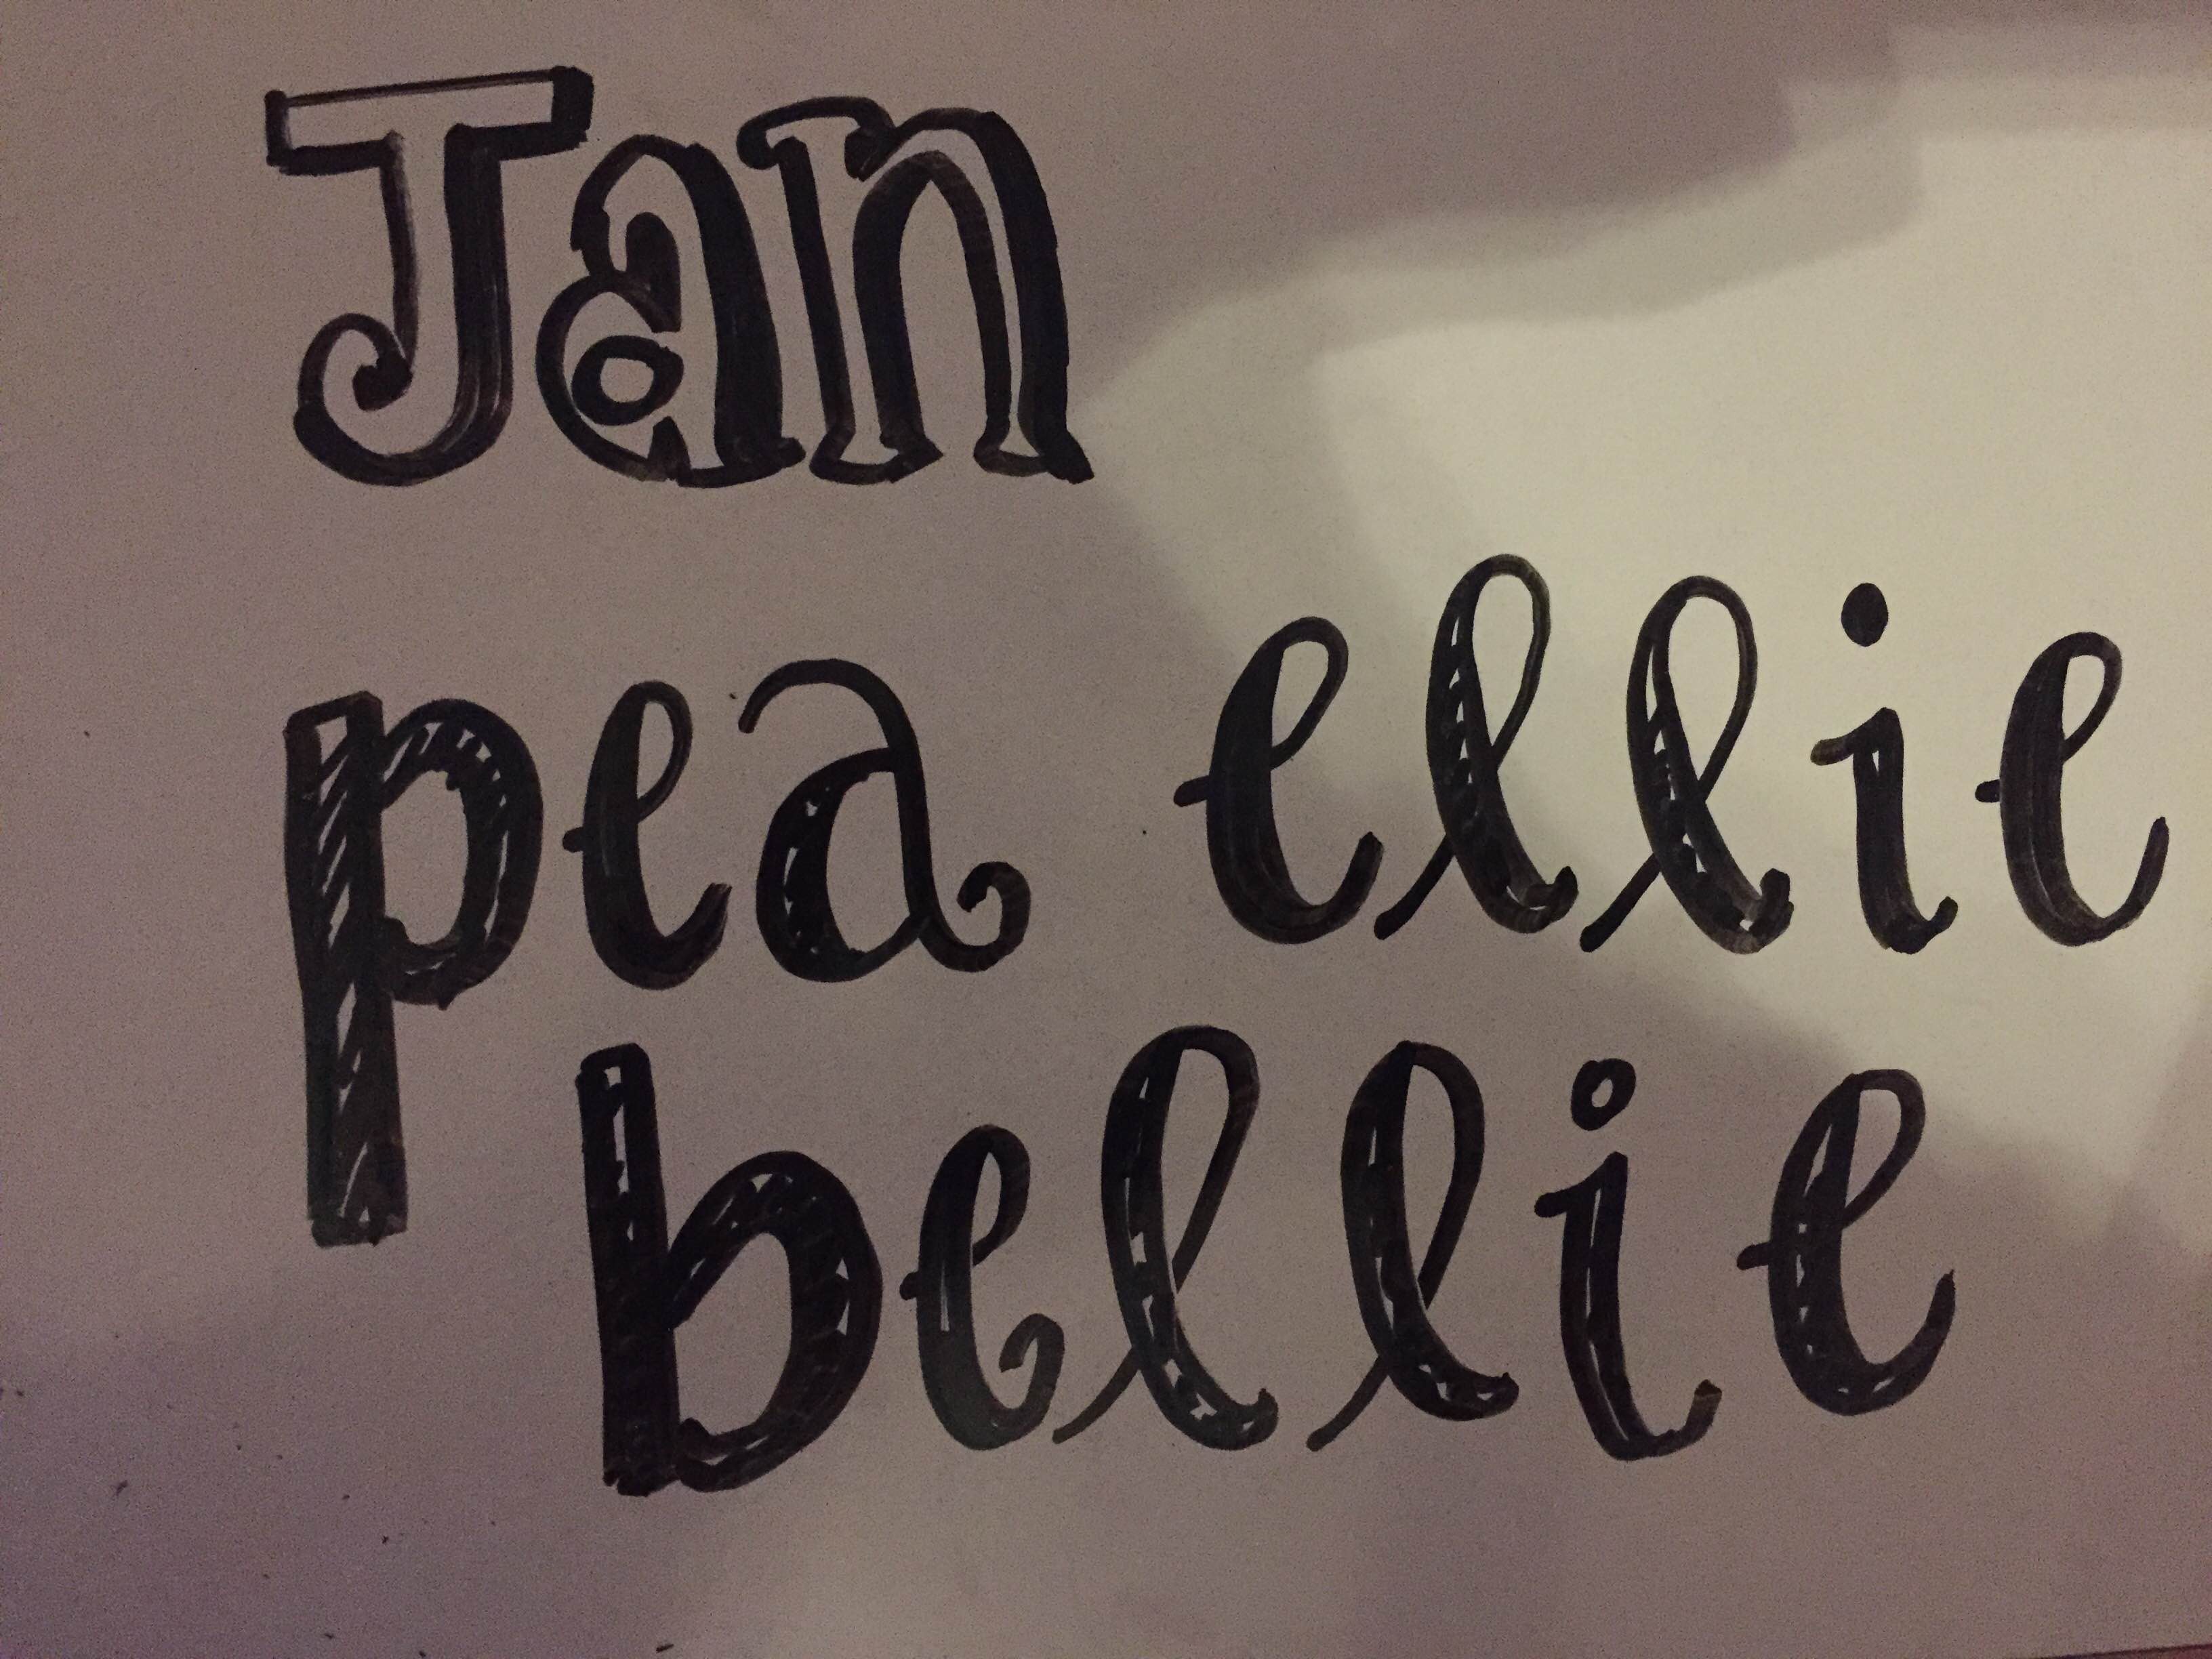 Jan
pea ellie
bellie